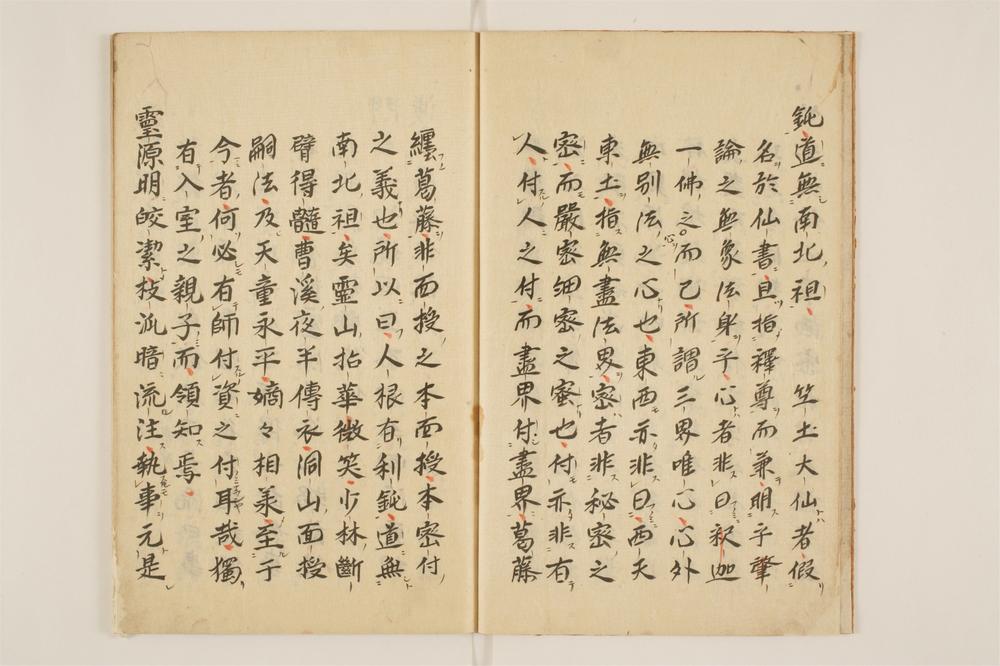 鈍道無南北祖　竺土大仙者假
名於仙書且指釋尊而兼明乎肇
論之無象法身乎心者非曰釈迦
一佛之而已所謂三界唯心心外
無別法之心也東西亦非曰西天
東土指無盡法界密者非秘密之
密而嚴密細密之蜜也付亦非有
人付人之付而盡界付盡界葛藤
纏葛藤非面授之本面授本密付
之義也所以曰人根有利鈍道無
南北祖矣霊山拈華微笑少林斷
臂得髓曹溪夜半傳衣洞山面授
嗣法及天童永平嫡々相羕至于
今者何必有師付資之付耳哉獨
有入室之親子而領知焉
靈源明皎潔枝派暗流注執事元是